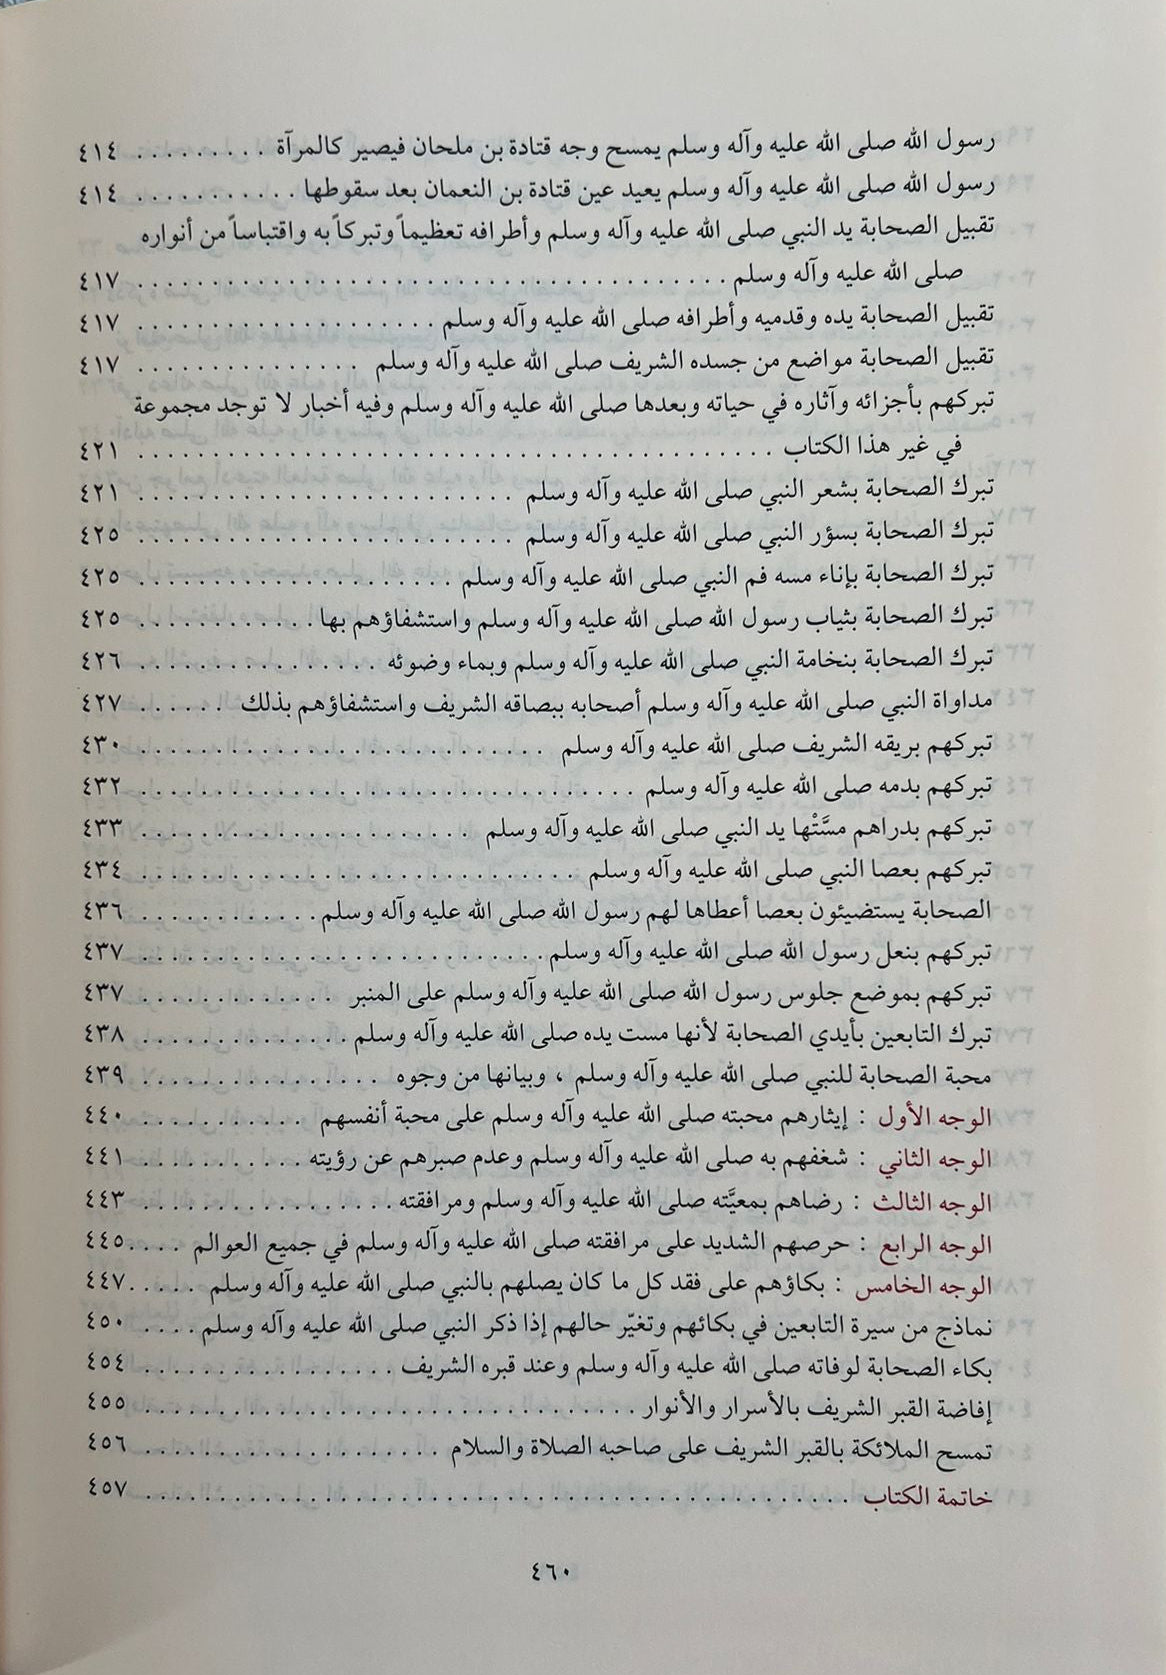 رسول الله صلى الله عليه وآله وسلم يمسح وجه قتادة بن ملحان فيصير كالمرآة ......... ٤١٤
رسول الله صلى الله عليه وآله وسلم يعيد عين قتادة بن النعمان بعد سقوطها ........... ٤١٤
تقبيل الصحابة يد النبي صلى الله عليه وآله وسلم وأطرافه تعظيماً وتبركاً به واقتباساً من أنواره
صلى الله عليه وآله وسلم ........................................ ٤١٧
تقبيل الصحابة يده وقدميه وأطرافه صلى الله عليه وآله وسلم .................... ٤١٧
تقبيل الصحابة مواضع من جسده الشريف صلى الله عليه وآله وسلم ............... ٤١٧
تبركهم بأجزائه وآثاره في حياته وبعدها صلى الله عليه وآله وسلم وفيه أخبار لا توجد مجموعة
في غير هذا الكتاب ........................................... ٤٢١
تبرك الصحابة بشعر النبي صلى الله عليه وآله وسلم ......................... ٤٢١
تبرك الصحابة بسؤر النبي صلى الله عليه وآله وسلم ......................... ٤٢٥
تبرك الصحابة بإناء مسه فم النبي صلى الله عليه وآله وسلم ..................... ٤٢٥
تبرك الصحابة بثياب رسول الله صلى الله عليه وآله وسلم واستشفاؤهم بها ............ ٤٢٥
تبرك الصحابة بنخامة النبي صلى الله عليه وآله وسلم وبماء وضوئه ................ ٤٢٦
مداواة النبي صلى الله عليه وآله وسلم أصحابه ببصاقه الشريف واستشفاؤهم بذلك ...... ٤٢٧
تبركهم بريقه الشريف صلى الله عليه وآله وسلم ........................... ٤٣٠
تبركهم بدمه صلى الله عليه وآله وسلم ................................. ٤٣٢
تبركهم بدراهم مسَّتْها يد النبي صلى الله عليه وآله وسلم ...................... ٤٣٣
تبركهم بعصا النبي صلى الله عليه وآله وسلم ............................. ٤٣٤
الصحابة يستضيئون بعصا أعطاها لهم رسول الله صلى الله عليه وآله وسلم ............ ٤٣٦
تبركهم بنعل رسول الله صلى الله عليه وآله وسلم ........................... ٤٣٧
تبركهم بموضع جلوس رسول الله صلى الله عليه وآله وسلم على المنبر ............. ٤٣٧
تبرك التابعين بأيدي الصحابة لأنها مست يده صلى الله عليه وآله وسلم .............. ٤٣٨
محبة الصحابة للنبي صلى الله عليه وآله وسلم ، وبيانها من وجوه ................ ٤٣٩
الوجه الأول : إيثارهم محبته صلى الله عليه وآله وسلم على محبة أنفسهم ........... ٤٤٠
الوجه الثاني : شغفهم به صلى الله عليه وآله وسلم وعدم صبرهم عن رؤيته ........... ٤٤١
الوجه الثالث : رضاهم بمعيَّته صلى الله عليه وآله وسلم ومرافقته ................. ٤٤٣
الوجه الرابع : حرصهم الشديد على مرافقته صلى الله عليه وآله وسلم في جميع العوالم .... ٤٤٥
الوجه الخامس : بكاؤهم على فقد كل ما كان يصلهم بالنبي صلى الله عليه وآله وسلم ..... ٤٤٧
نماذج من سيرة التابعين في بكائهم وتغيّر حالهم إذا ذكر النبي صلى الله عليه وآله وسلم .... ٤٥٠
بكاء الصحابة لوفاته صلى الله عليه وآله وسلم وعند قبره الشريف ................. ٤٥٤
إفاضة القبر الشريف بالأسرار والأنوار ................................. ٤٥٥
تمسح الملائكة بالقبر الشريف على صاحبه الصلاة والسلام .................... ٤٥٦
خاتمة الكتاب ................................................ ٤٥٧
٤٦٠